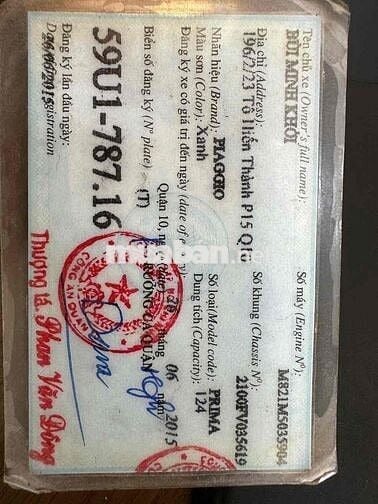 Tên chủ xe (Owner's full name):
BUI MINH KHÔI
Địa chỉ (Address):
196/2/23 Tô Hiến Thành P15 Q10
Nhãn hiệu (Brand): PIAGGIO
Màu sơn (Color): Xanh
Đăng ký xe có giá trị đến ngày (date of expiry)
Biển số đăng ký (N° plate)
59U1-787.16
Đăng ký lần đầu ngày:
Date of first registration
26/06/2015
Số máy (Engine N°):
M821M5035904
Số khung (Chassis N°)
2100FV035619
Số loại (Model code): PRIMA
Dung tích (Capacity): 124
Quận 10, ngày 26 tháng 06 năm 2015
(T) TRƯỞNG CA QUẬN
Thượng tá. Phan Văn Đông
muaban.net